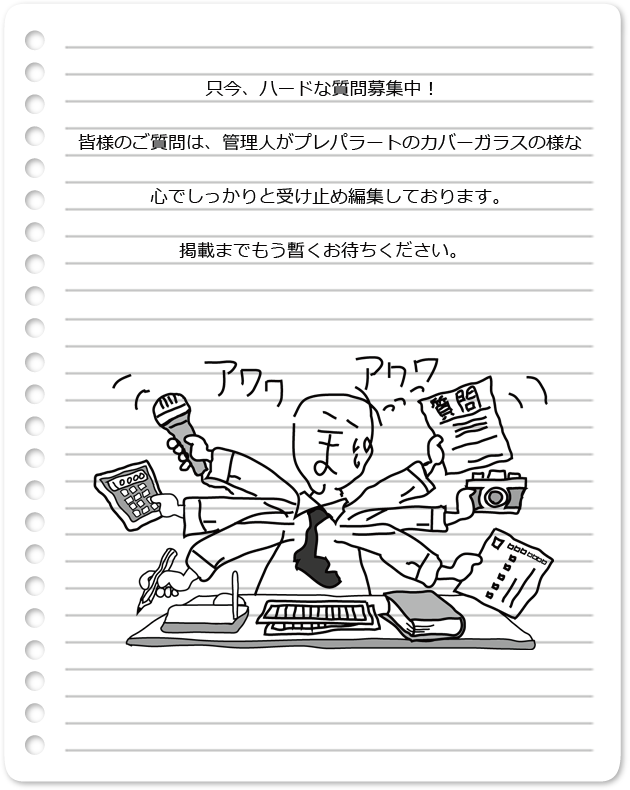 只今、ハードな質問募集中！
皆様のご質問は、管理人がプレパラートのカバーガラスの様な
心でしっかりと受け止め編集しております。
掲載までもう暫くお待ちください。
アワワ
アワワ
質問
ま